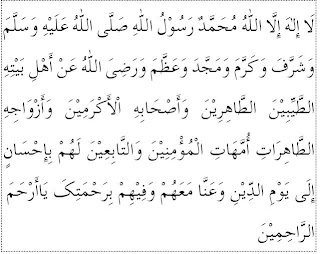 لَا إِلٰهَ إِلَّا اللهُ مُحَمَّدٌ رَسُوْلُ اللهِ صَلَّى اللهُ عَلَيْهِ وَسَلَّمَ
وَشَرَّفَ وَكَرَّمَ وَمَجَّدَ وَعَظَّمَ وَرَضِىَ اللهُ عَنْ أَهْلِ بَيْتِهِ
الطَّيِّبِيْنَ الطَّاهِرِيْنَ وَأَصْحَابِهِ الْأَكْرَمِيْنَ وَأَزْوَاجِهِ
الطَّاهِرَاتِ أُمَّهَاتِ الْمُؤْمِنِيْنَ وَالتَّابِعِيْنَ لَهُمْ بِإِحْسَانٍ
إِلَى يَوْمِ الدِّيْنِ وَعَنَّا مَعَهُمْ وَفِيْهِمْ بِرَحْمَتِكَ يَاأَرْحَمَ
الرَّاحِمِيْنَ